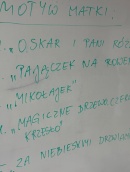 MOTYW MATKI
"OSKAR I PANI RÓŻ
"PAJĄCZEK NA ROWER
"MIKOŁAJEK"
"MAGICZNE DRZEWO CZERW
KRZESŁO"
- ZA NIEBIESKIMI DRZWIAM